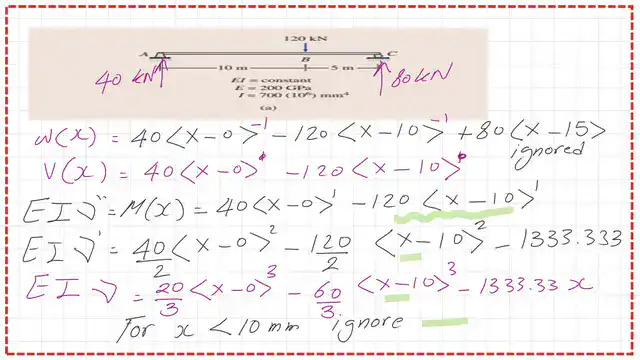 120 kN
A B C
10 m 5 m
40 kN 80 kN
EI = constant
E = 200 GPa
I = 700 (10⁶) mm⁴
(a)
w(x) = 40<x-0>⁻¹ - 120<x-10>⁻¹ + 80<x-15>
ignored
V(x) = 40<x-0>⁰ - 120<x-10>⁰
EIν'' = M(x) = 40<x-0>¹ - 120<x-10>¹
EIν' = 40/2 <x-0>² - 120/2 <x-10>² - 1333.333
EIν = 20/3 <x-0>³ - 60/3 <x-10>³ - 1333.33 x
For x < 10 mm ignore